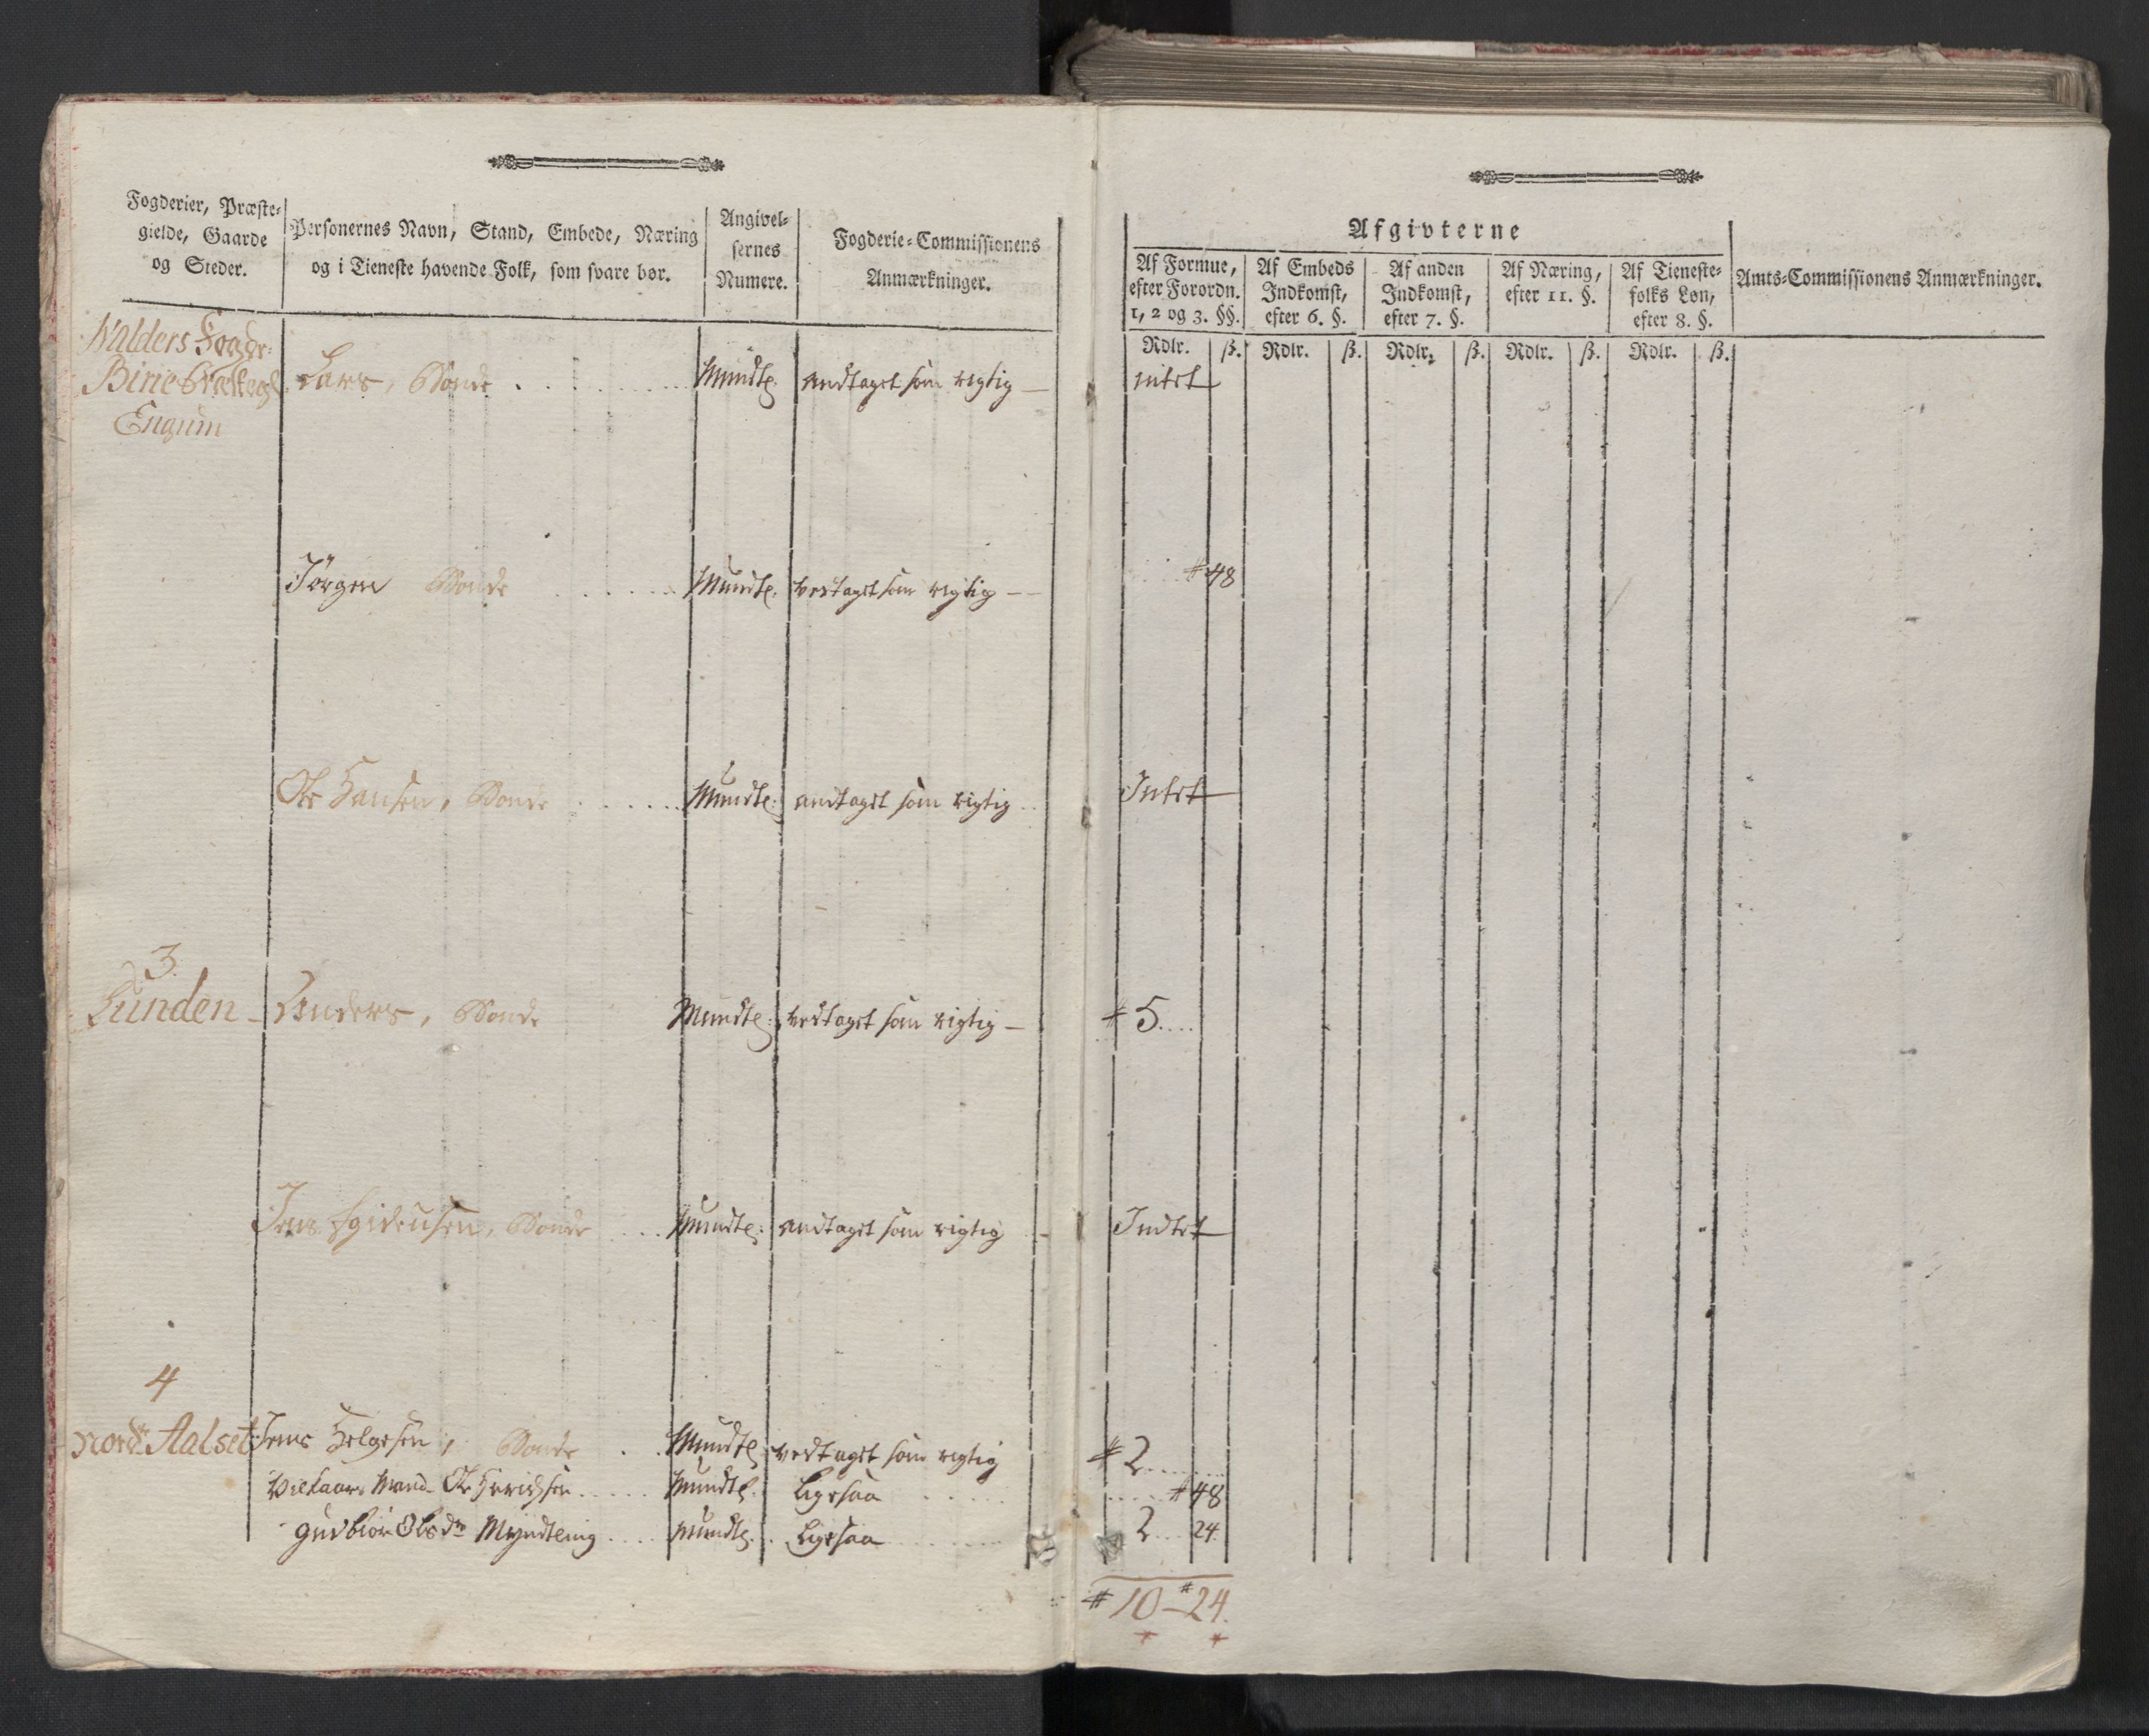 Fogderier, Præste-
gielde, Gaarde
og Steder.
Personernes Navn, Stand, Embede, Næring
og i Tieneste havende Folk, som svare bør.
Angivel-
sernes
Numere.
Fogderie-Commissionens
Anmærkninger.
Afgivterne
Af Formue,
efter Forordn.
1, 2 og 3. §§.
Af Embeds
Indkomst,
efter 6. §.
Af anden
Indkomst,
efter 7. §.
Af Næring,
efter 11. §.
Af Tieneste-
folks Løn,
efter 8. §.
Amts-Commissionens Anmærkninger.
Rdlr. ß. Rdlr. ß. Rdlr. ß. Rdlr. ß. Rdlr. ß.
Walders Fogdr:
Birie Præstegl
Engum
Lars, Bonde . . . . . Mundtl: andtaget som rigtig — intet
Jörgen Bonde . . . . . Mundtl: vedtaget som rigtig — — # 48
Ole Hansen, Bonde . . . . . Mundtl: andtaget som rigtig . . Intet
3.
Lunden - Anders, Bonde Mundtl: vedtaget som rigtig — # 5 . . . .
Jens Bonde . . . . Mundtl: andtaget som rigtig . - Indtet
4
Nordr Aalset Jens Helgesen, Bonde . . Mundtl vedtaget som rigtig # 2 . . . . .
Vilkaars Mand Ole . . . . . Mundtl. Ligesaa . . . . . # 48
Gudbiör Olsdr Myndtling . . . . Mundtl. . Ligesaa . . . . . 2 . . . 24.
# 10 - # 24.